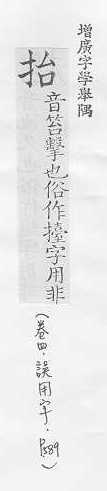 增廣字學舉隅
抬
音笞擊也俗作擡字用非
(卷四.誤用字.P.589)